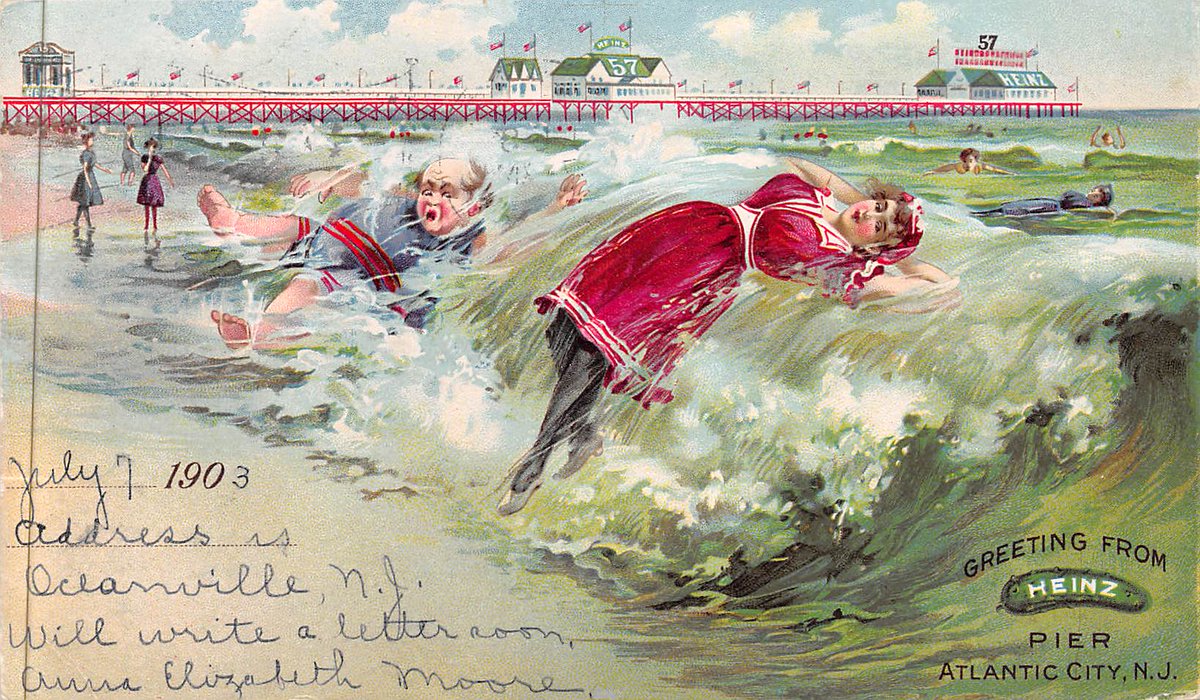 HEINZ
HEINZ
57
57
HEINZ
July 7 1903
Address is
Oceanville, N.J.
Will write a letter soon,
Anna Elizabeth Moore
GREETING FROM
HEINZ
PIER
ATLANTIC CITY, N.J.